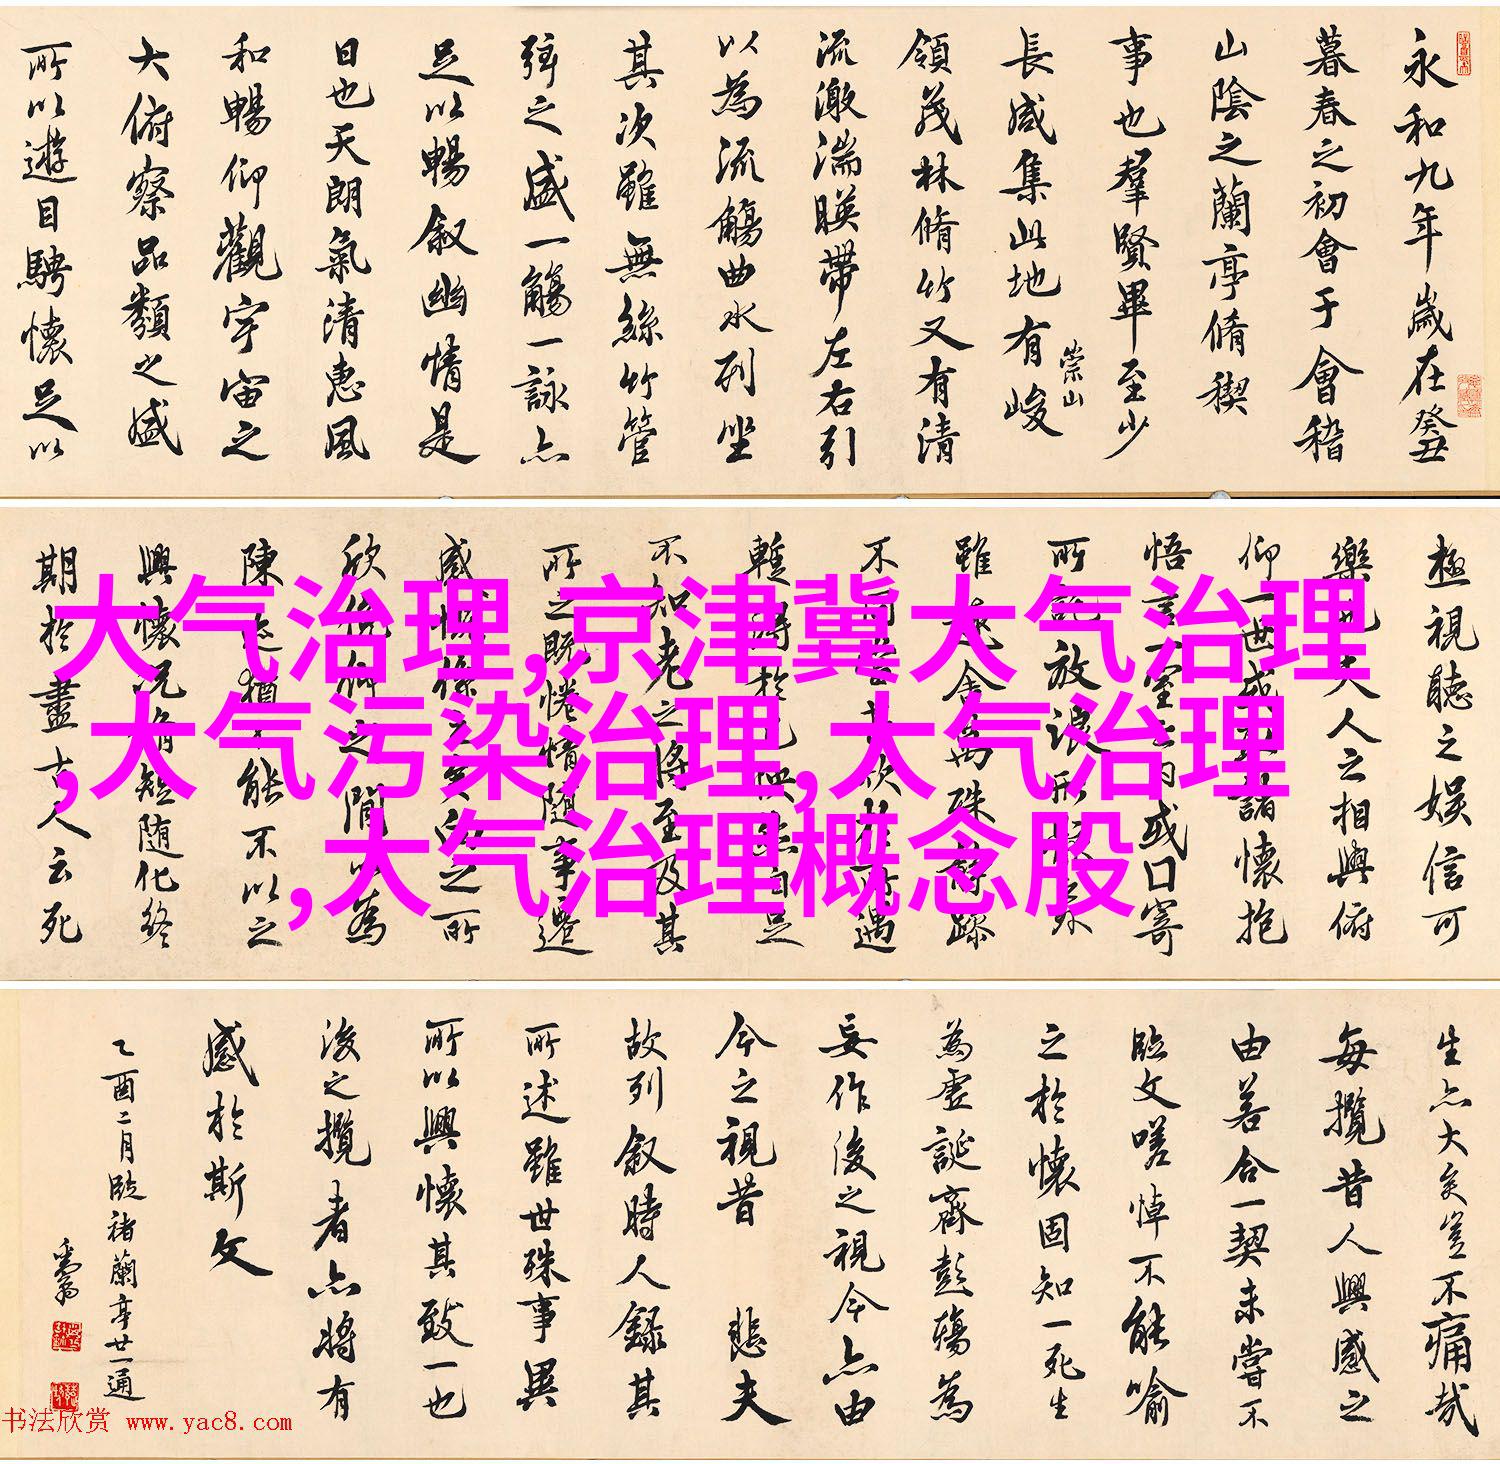 永和九年歲在癸丑
暮春之初會于會稽
山陰之蘭亭脩稧
事也羣賢畢至少
長咸集此地有峻
崇山
領茂林脩竹又有清
流激湍暎帶左右引
以為流觴曲水列坐
其次雖無絲竹管
弦之盛一觴一詠亦
足以暢叙幽情是
日也天朗氣清惠風
和暢仰觀宇宙之
大俯察品類之盛
所以遊目騁懷足以
極視聽之娛信可
樂也夫人之相與俯
仰一世或諸懷抱
悟言一室之內或口寄
所託放浪形
雖趣舍萬殊
不同
暫得於己
不知老之將至及其
所之既惓情隨事遷
感慨係之矣之所
欣俛仰之間以為
陳迹猶不能不以之
興懷況脩短隨化終
期於盡古人云死
大气治理,京津冀大气治理
,大气污染治理,大气治理
,大气治理概念股
生亦大矣豈不痛哉
每攬昔人興感之
由若合一契未嘗不
臨文嗟悼不能喻
之於懷固知一死生
為虛誕齊彭殤為
妄作後之視今亦由
今之視昔 悲夫
故列叙時人錄其
所述雖世殊事異
所以興懷其致一也
後之攬者亦將有
感於斯文
乙酉二月臨褚蘭亭廿一通
书法欣赏 www.yac8.com